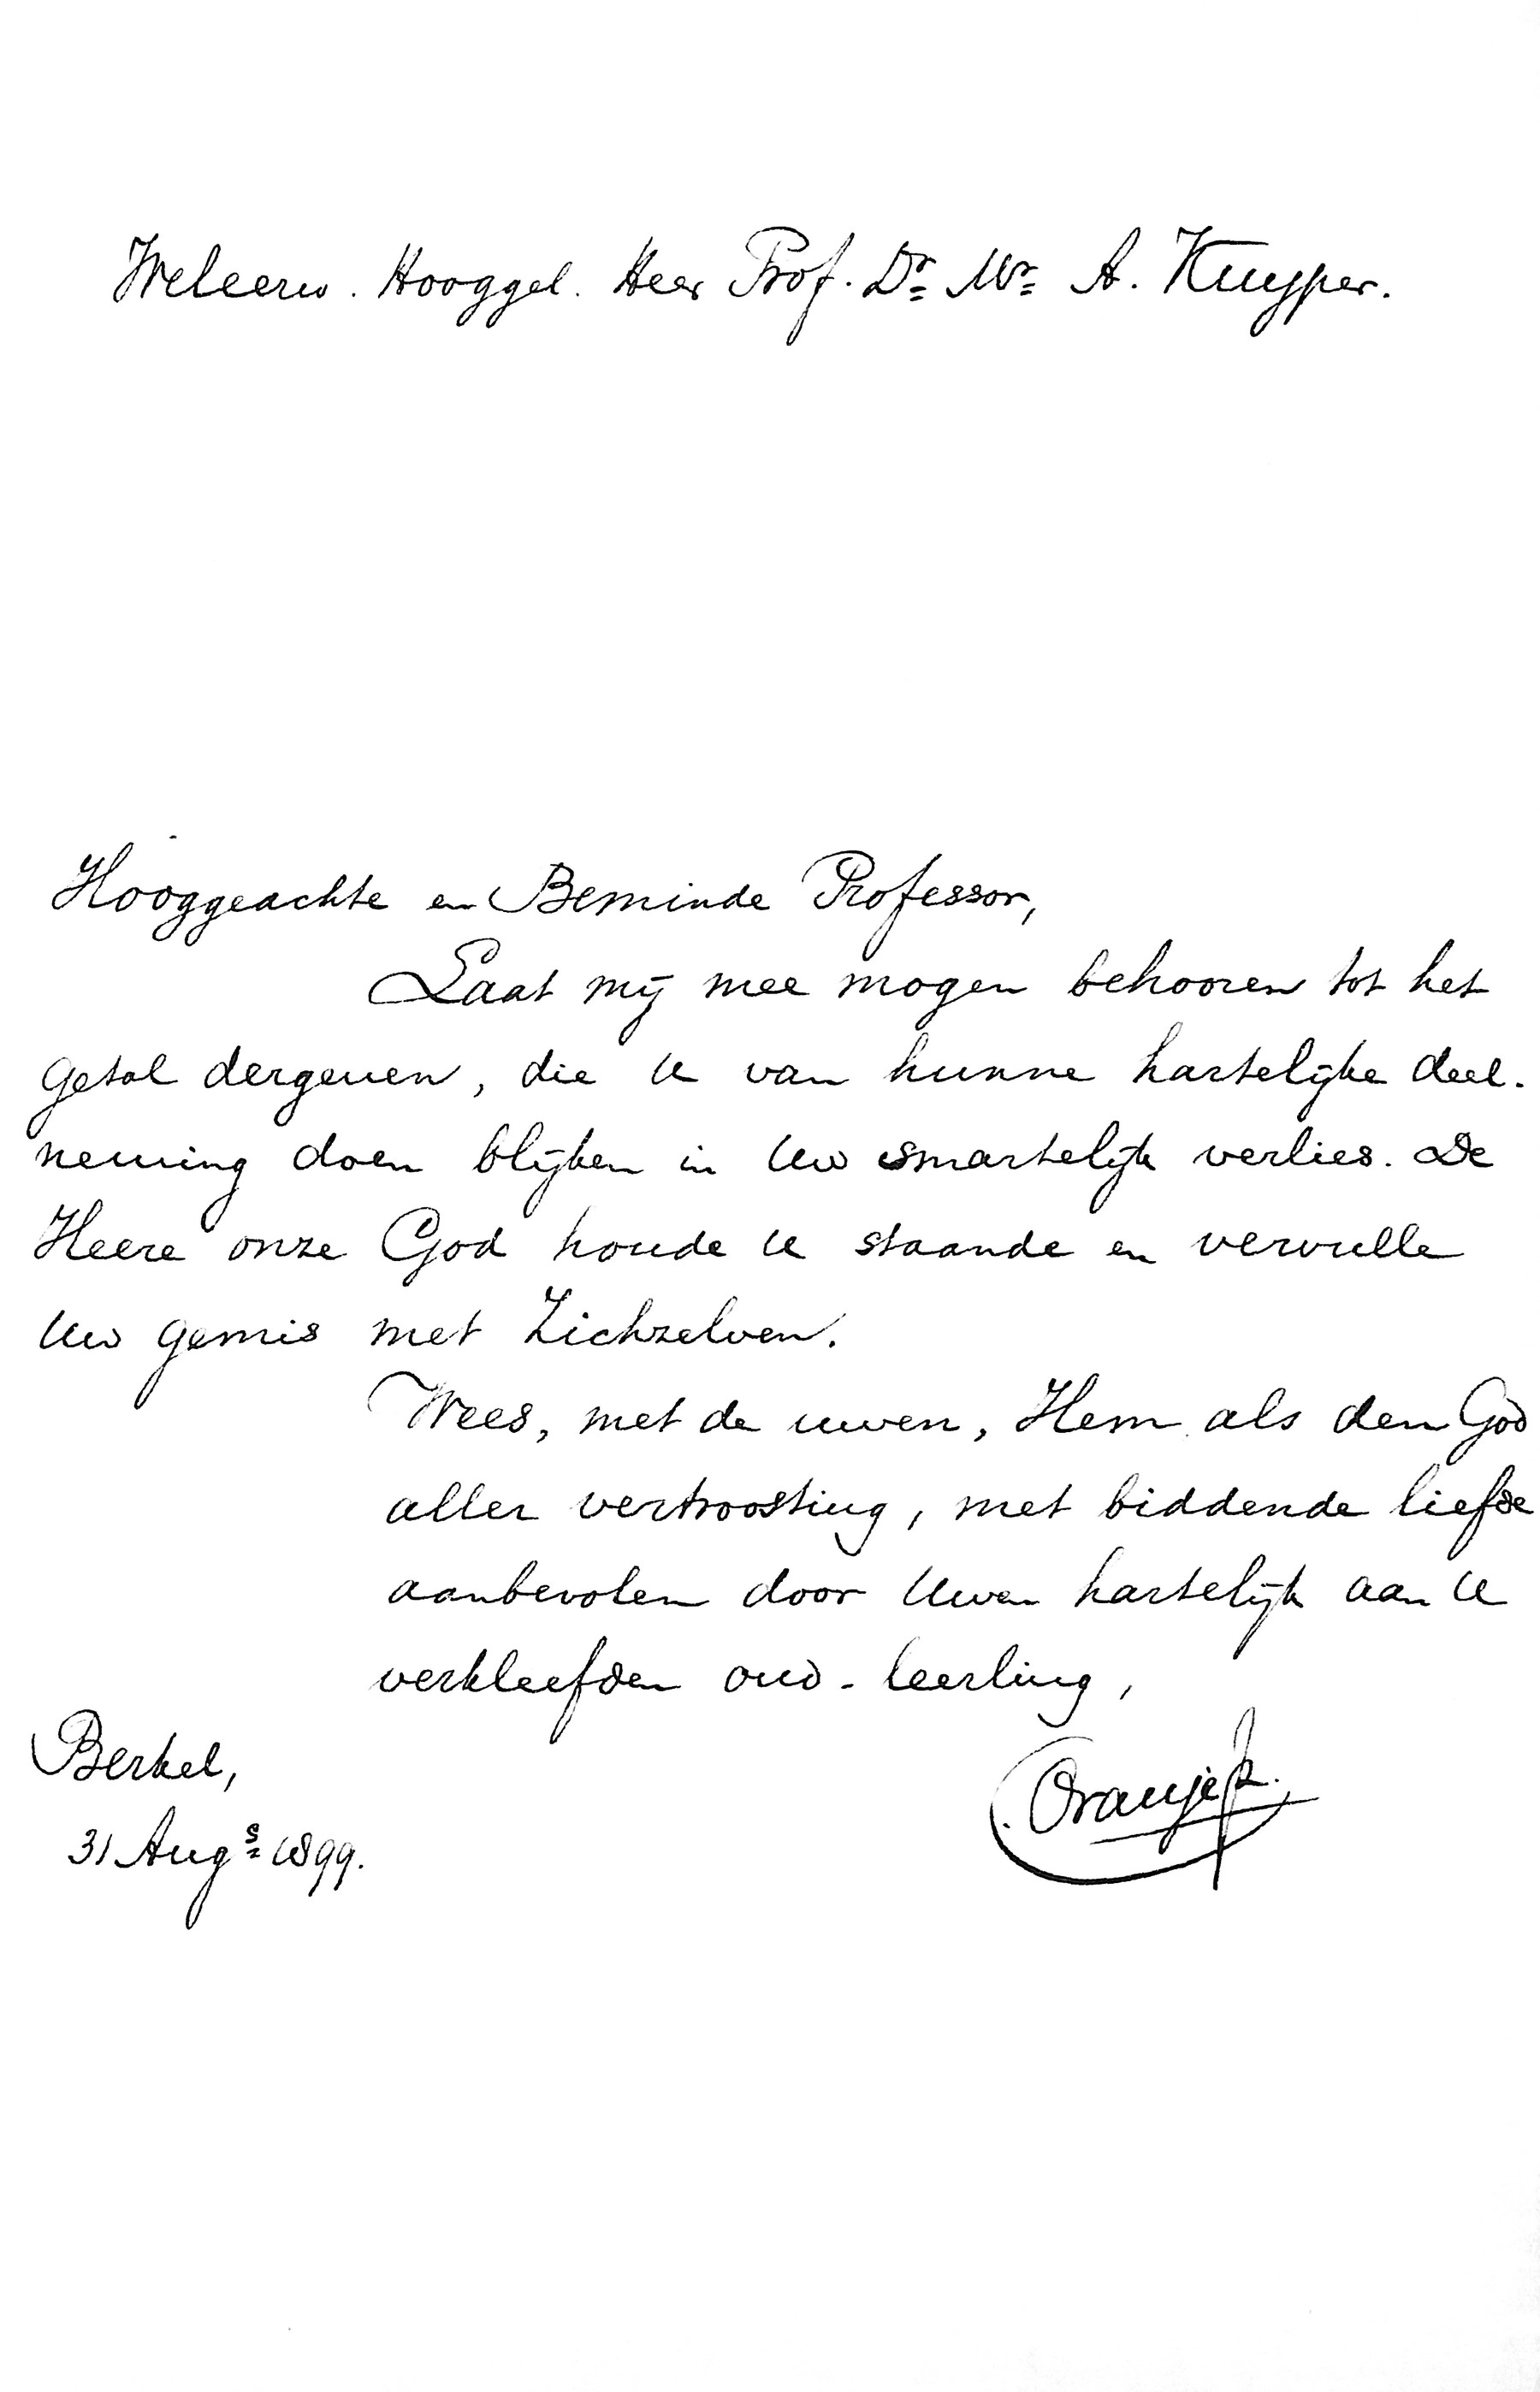 Weleerw. Hooggel. Heer Prof. Dr Mr A. Kuyper.
Hooggeachte en Beminde Professor,
Laat mij mee mogen behooren tot het
getal dergenen, die U van hunne hartelijke deel-
neming doen blijken in Uw smartelijk verlies. De
Heere onze God houde U staande en vervulle
Uw gemis met Zichzelven.
Wees, met de uwen, Hem als den God
aller vertroosting, met biddende liefde
aanbevolen door Uwen hartelijk aan U
verkleefden oud-leerling,
Berkel,
Oranje
31 Augs 1899.